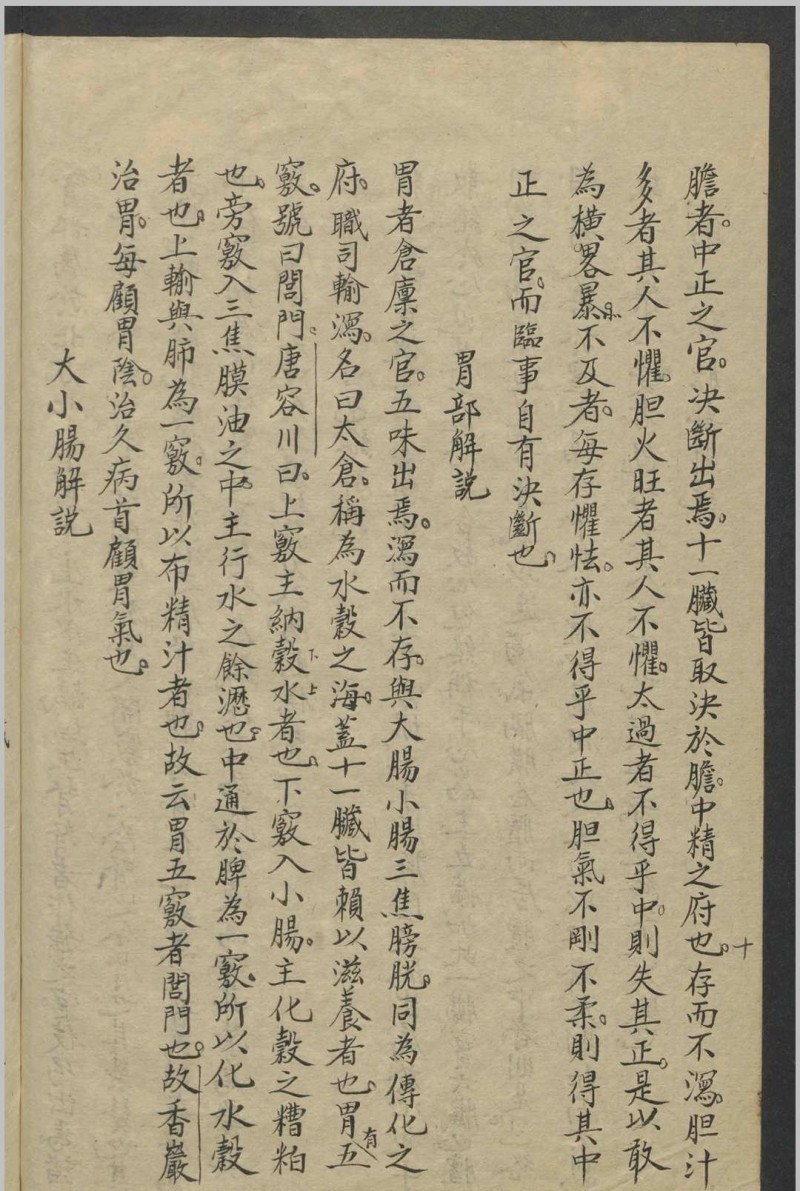 膽者。中正之官。决斷出焉。十一臟皆取決於膽。中精之府也。存而不瀉。胆汁
多者其人不懼。胆火旺者其人不懼。太過者不得乎中。則失其正。是以敢
為橫畧暴。不及者。每存懼怯。亦不得乎中正也。胆氣不剛不柔。則得其中
正之官。而臨事自有決斷也。
胃部解說
胃者倉廩之官。五味出焉。瀉而不存。與大腸小腸三焦膀胱。同為傳化之
府。職司輸瀉。名曰太倉。稱為水穀之海。蓋十一臟皆賴以滋養者也。胃有五
竅。號曰閭門。唐容川曰。上竅主納穀水者也。下竅入小腸。主化穀之糟粕
也。旁竅入三焦膜油之中。主行水之餘瀝也。中通於脾為一竅。所以化水穀
者也。上輸與肺為一竅。所以布精汁者也。故云胃五竅者閭門也。故香巖
治胃。每顧胃陰。治久病首顧胃氣也。
大小腸解說